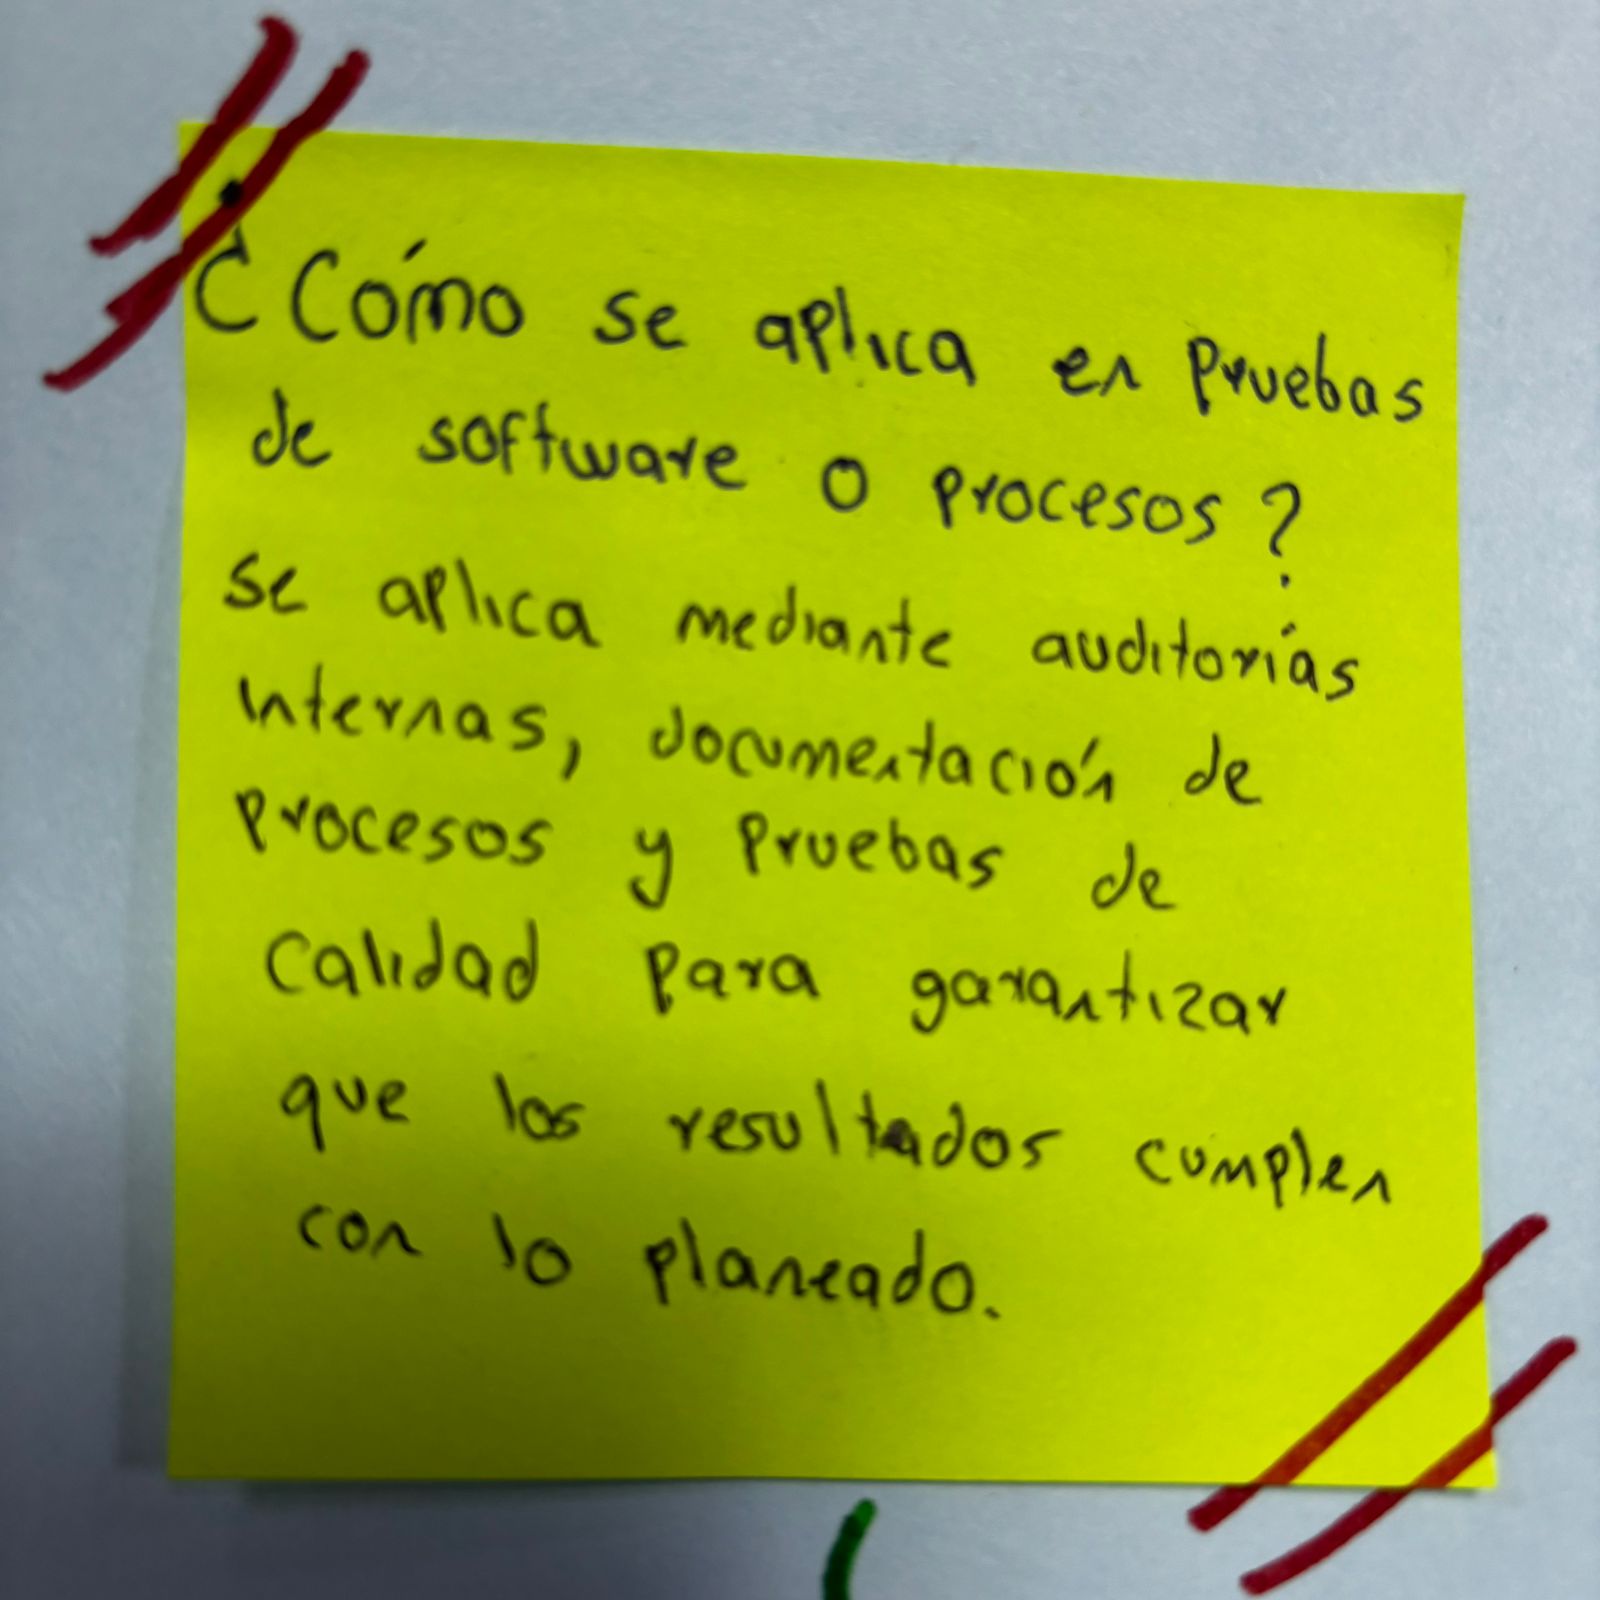 ¿Cómo se aplica en pruebas
de software o procesos?
se aplica mediante auditorías
internas, documentación de
procesos y pruebas de
calidad para garantizar
que los resultados cumplen
con lo planeado.